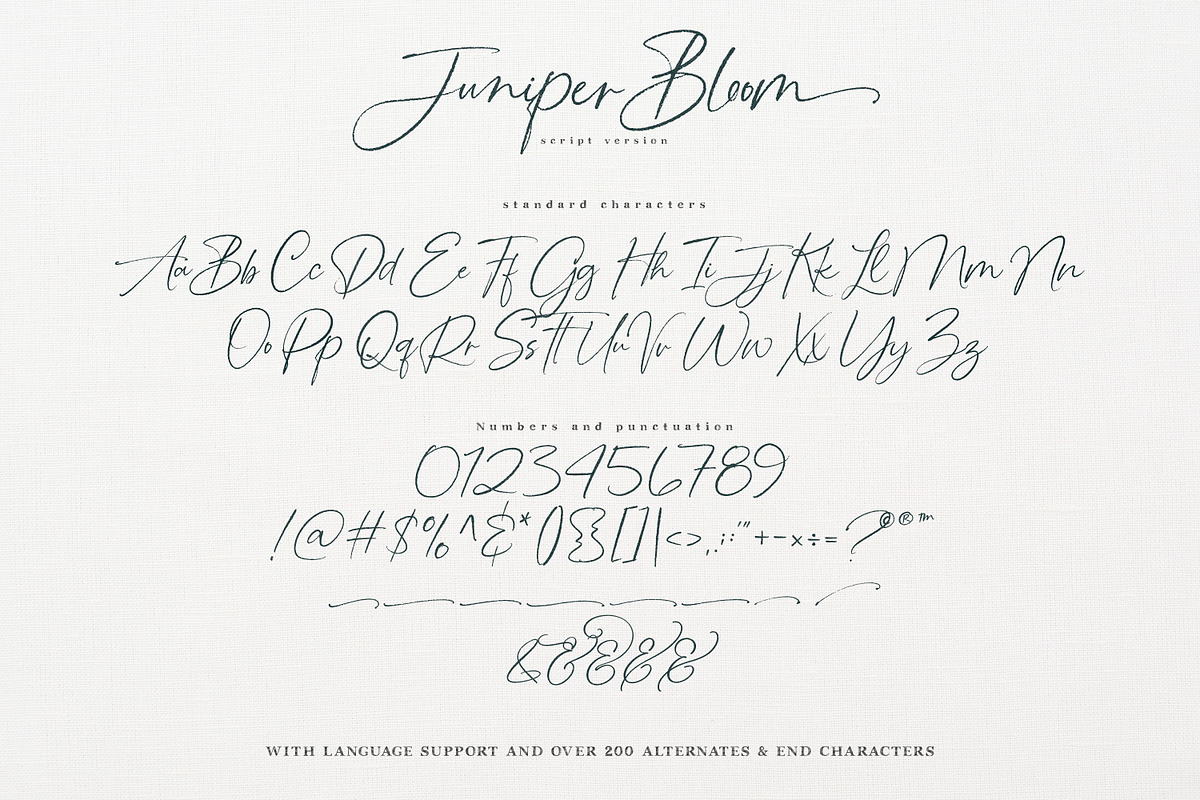 Juniper Bloom
script version
standard characters
Aa Bb Cc Dd Ee Ff Gg Hh Ii Jj Kk Ll Mm Nn
Oo Pp Qq Rr Ss Tt Uu Vv Ww Xx Yy Zz
Numbers and punctuation
0123456789
!@#$%^&*(){}[]|<>,.;:'"+-x÷=?©®™
&&&&&
WITH LANGUAGE SUPPORT AND OVER 200 ALTERNATES & END CHARACTERS